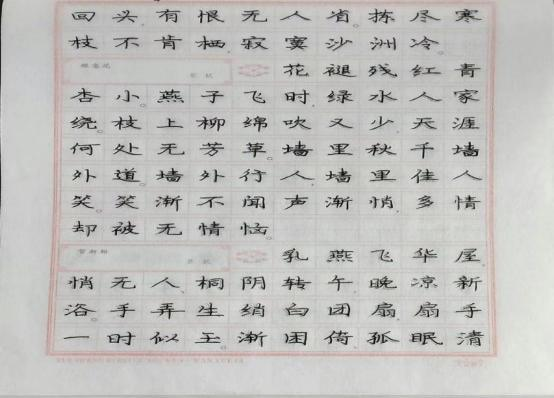 回头有恨无人省拣尽寒
枝不肯栖。寂寞沙洲冷。
蝶恋花 苏轼 花褪残红青
杏小。燕子飞时,绿水人家
绕。枝上柳绵吹又少,天涯
何处无芳草。墙里秋千墙
外道。墙外行人,墙里佳人
笑。笑渐不闻声渐悄,多情
却被无情恼。
贺新郎 苏轼 乳燕飞华屋。
悄无人、桐阴转午,晚凉新
浴。手弄生绡白团扇,扇手
一时似玉。渐困倚、孤眠清